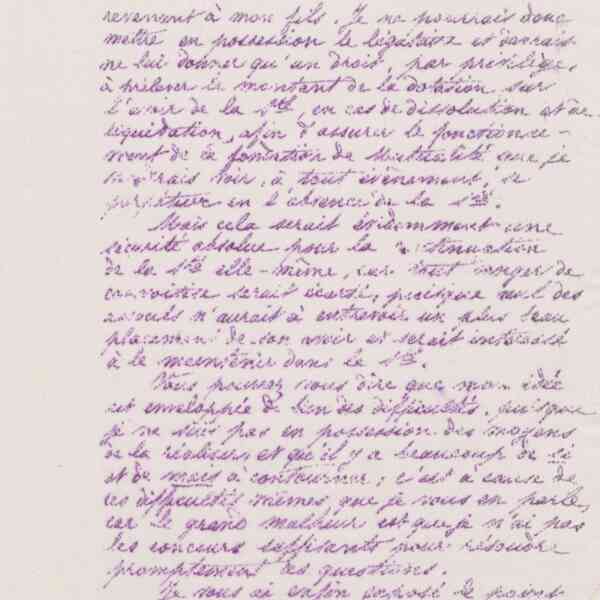 revenant à mon fils. Je ne pourrais donc
mettre en possession le légataire et devrais
ne lui donner qu'un droit, par privilège,
à prélever le montant de la dotation sur
l'avoir de la Sté, en cas de dissolution et de
liquidation, afin d'assurer le fonctionne-
ment de la fondation de Mutualité que je
voudrais voir, à tout évènement, se
perpétuer en l'absence de la Sté.
Mais cela serait évidemment une
sécurité absolue pour la continuation
de la Sté elle-même, car tout danger de
convoitise serait écarté, puisque nul des
associés n'aurait à entrevoir un plus beau
placement de son avoir et serait intéressé
à le maintenir dans la Sté.
Vous pouvez vous dire que mon idée
est enveloppée de bien des difficultés, puisque
je ne suis pas en possession des moyens
de la réaliser et qu'il y a beaucoup de si
et de mais à contourner; c'est à cause de
ces difficultés mêmes que je vous en parle,
car le grand malheur est que je n'ai pas
les concours suffisants pour résoudre
promptement les questions.
Je vous ai enfin exposé le point